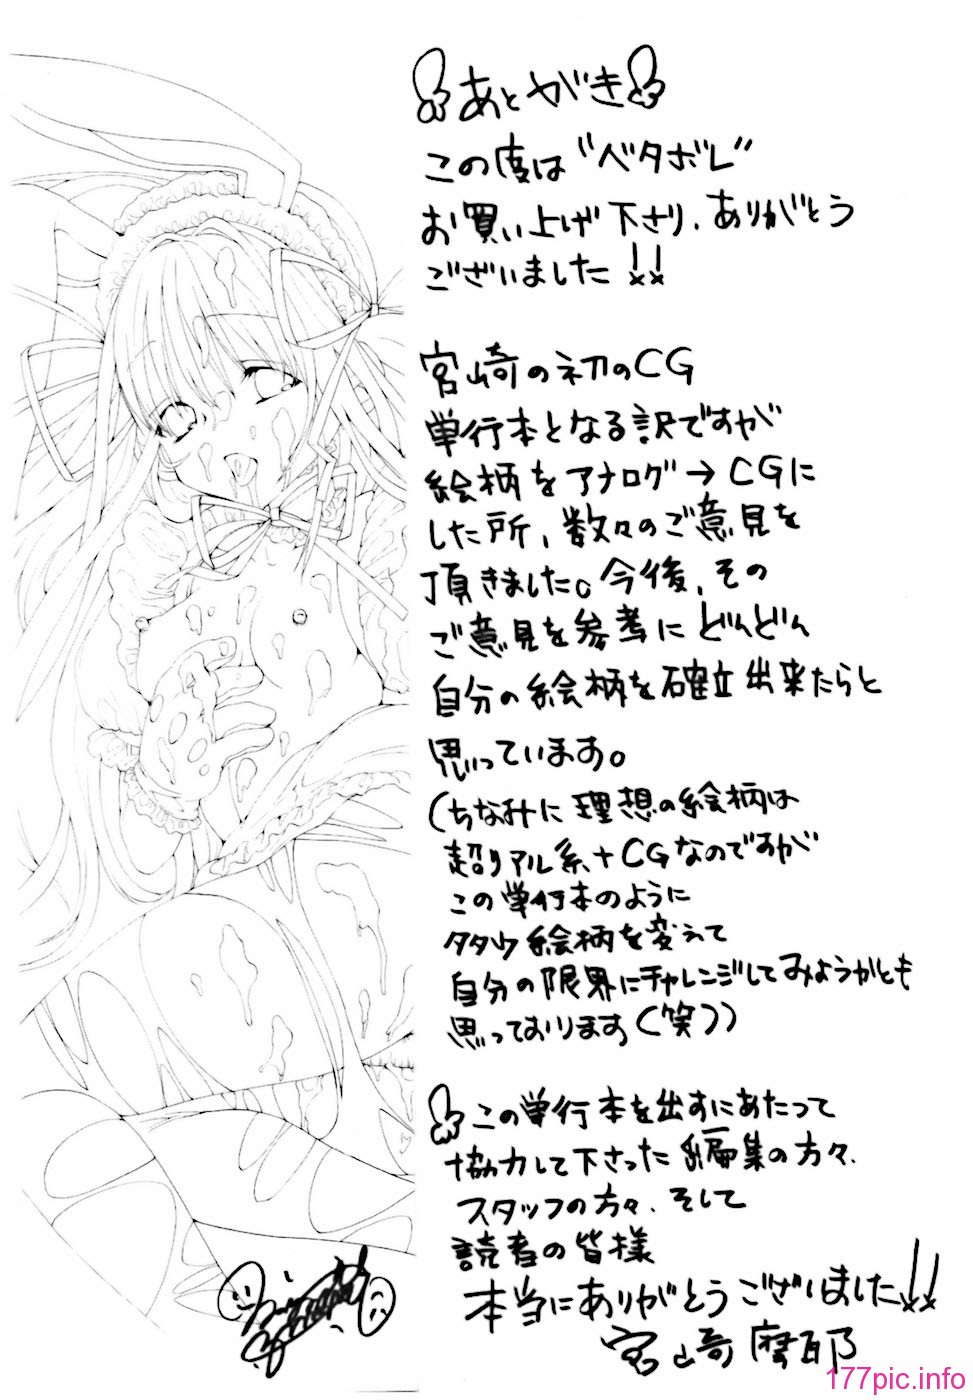 あとがき
この度は"ベタボレ"
お買い上げ下さり、ありがとう
ございました!!
宮崎の初のCG
単行本となる訳ですが
絵柄をアナログ→CGに
した所、数々のご意見を
頂きました。今後、その
ご意見を参考にどんどん
自分の絵柄を確立出来たらと
思っています。
(ちなみに理想の絵柄は
超リアル系+CGなのですが
この単行本のように
タタウ絵柄を変えて
自分の限界にチャレンジしてみようかとも
思っております(笑))
この単行本を出すにあたって
協力して下さった編集の方々、
スタッフの方々、そして
読者の皆様
本当にありがとうございました!!
宮崎摩耶
177pic.info